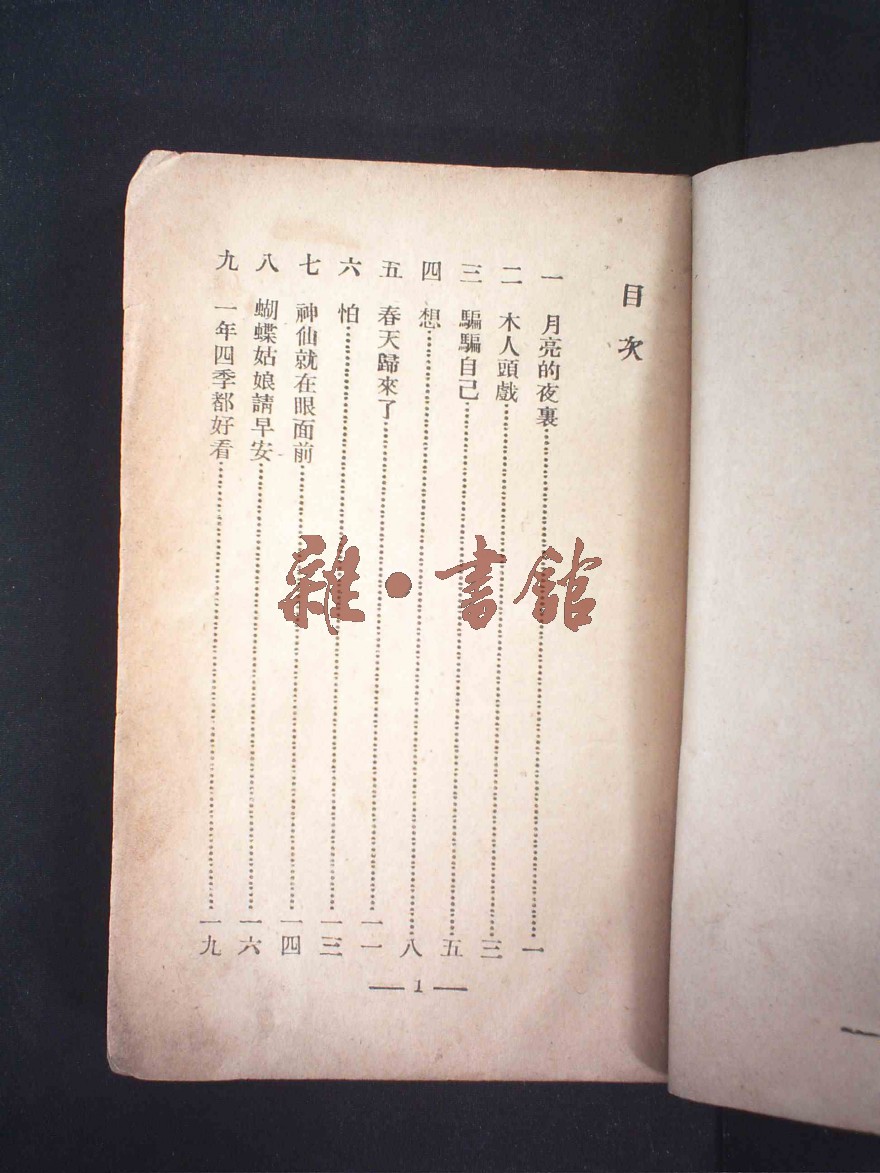 目次
一 月亮的夜裏……一
二 木人頭戲……三
三 騙騙自己……五
四 想……八
五 春天歸來了……一一
六 怕……一三
七 神仙就在眼面前……一四
八 蝴蝶姑娘請早安……一六
九 一年四季都好看……一九
— 1 —
雜·書館